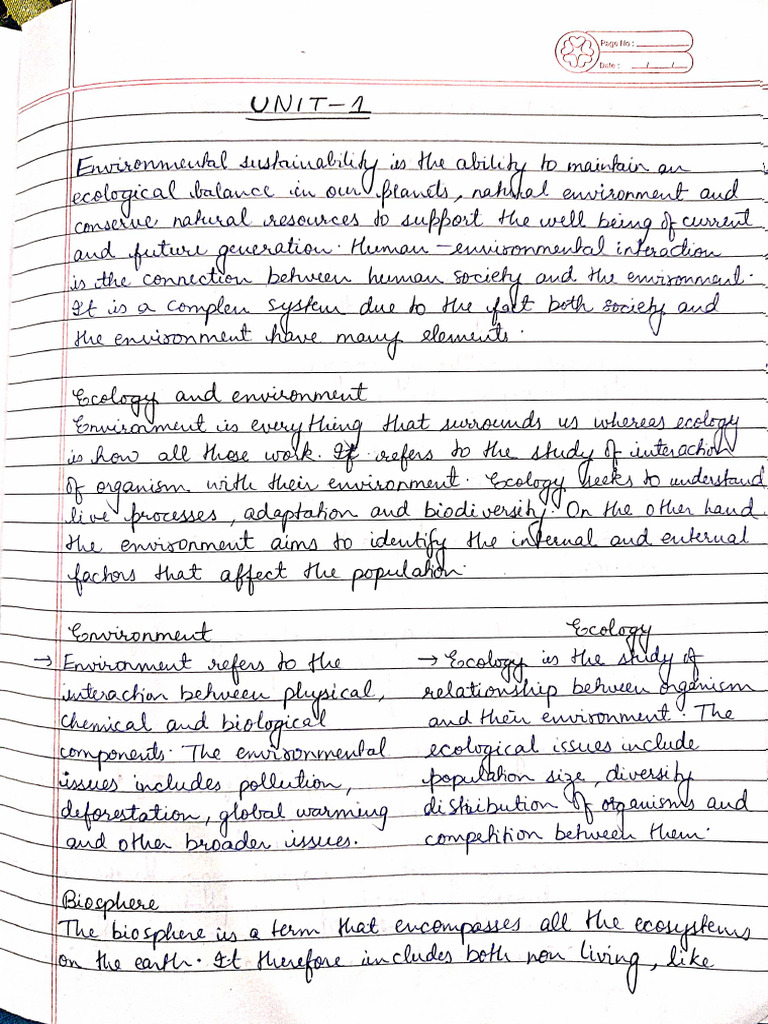 Page No :
Date : / /
UNIT-1
Environmental sustainability is the ability to maintain an
ecological balance in our planets, natural environment and
conserve natural resources to support the well being of current
and future generation. Human-environmental interaction
is the connection between human society and the environment.
It is a complex system due to the fact both society and
the environment have many elements.
Ecology and environment
Environment is everything that surrounds us whereas ecology
is how all these work. It refers to the study of interaction
of organism with their environment. Ecology seeks to understand
live processes, adaptation and biodiversity. On the other hand
the environment aims to identify the internal and external
factors that affect the population.
Environment
→ Environment refers to the
interaction between physical,
chemical and biological
components. The environmental
issues includes pollution,
deforestation, global warming
and other broader issues.
Ecology
→ Ecology is the study of
relationship between organism
and their environment. The
ecological issues include
population size, diversity
distribution of organisms and
competition between them.
Biosphere
The biosphere is a term that encompasses all the ecosystems
on the earth. It therefore includes both non living, like